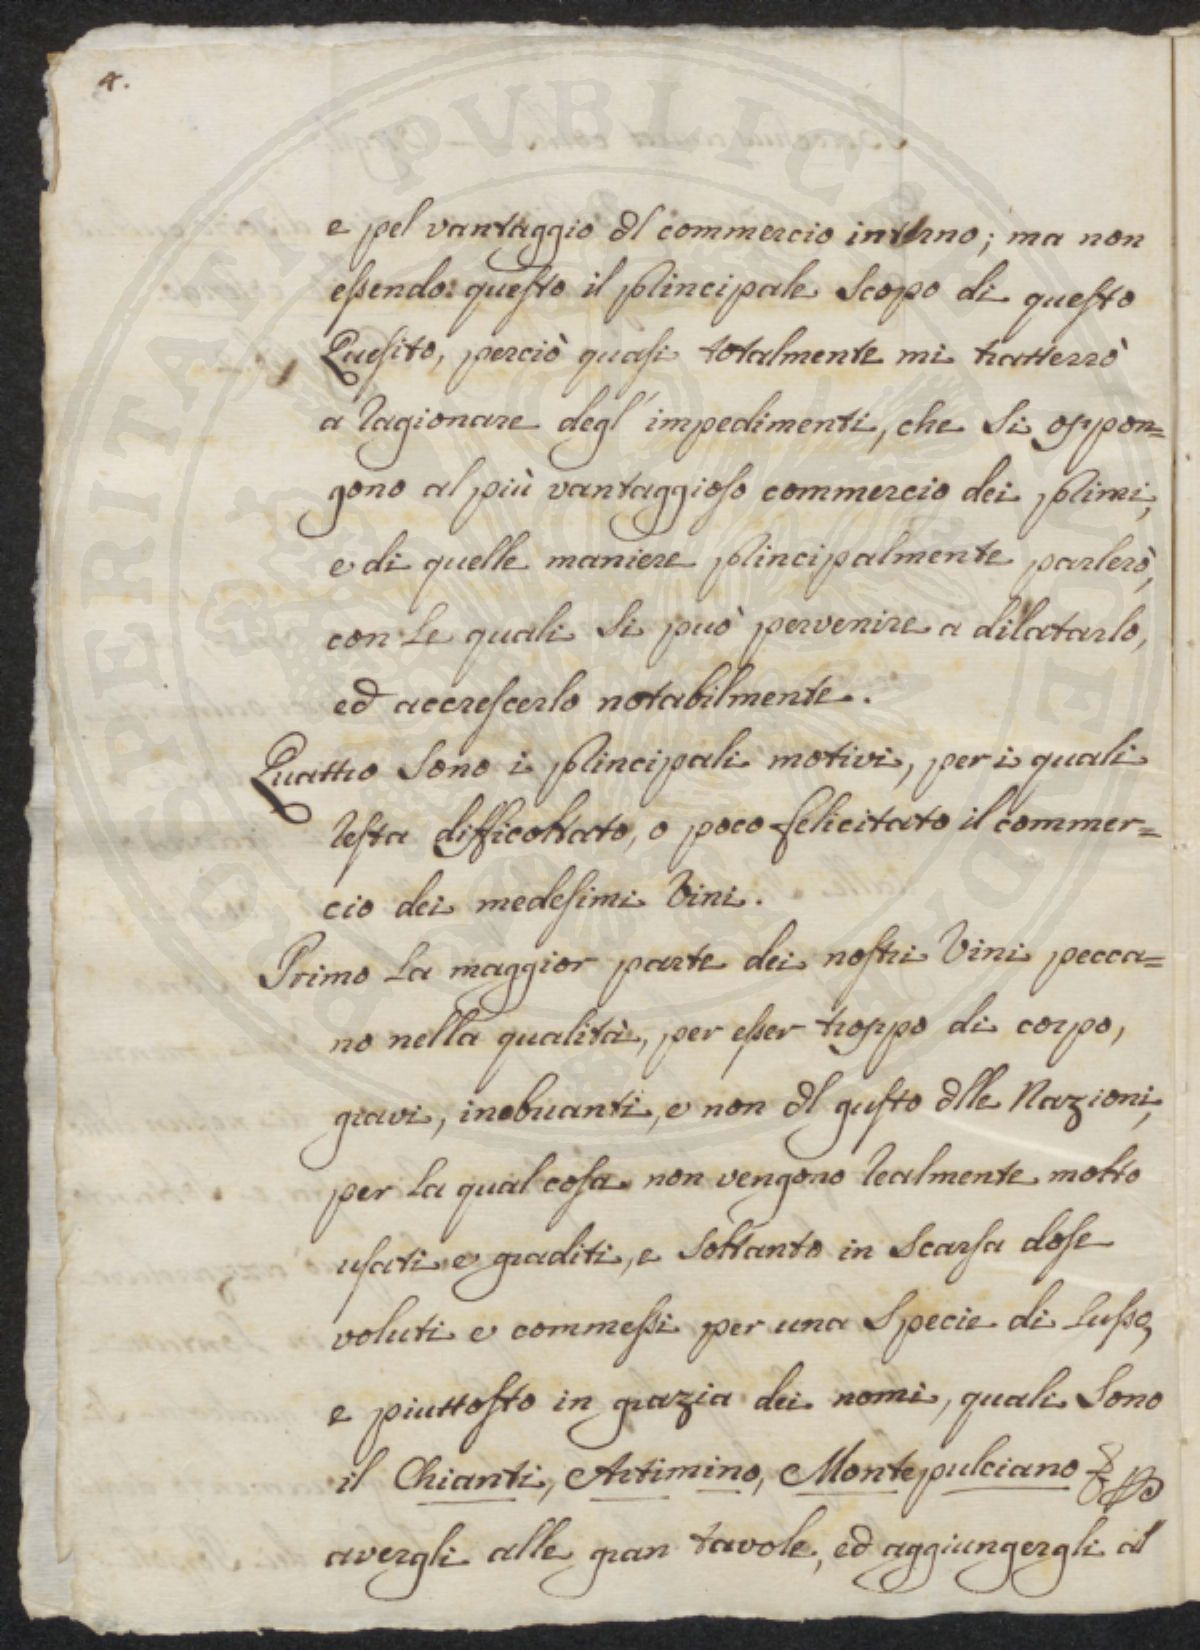 4.
e pel vantaggio dl commercio interno; ma non
essendo questo il principale scopo di questo
Quesito, perciò quasi totalmente mi tratterrò
a ragionare degl'impedimenti, che si oppon=
gono al più vantaggioso commercio dei primi,
e di quelle maniere principalmente parlerò,
con le quali si può pervenire a dilatarlo,
ed accrescerlo notabilmente.
Quattro sono i principali motivi, per i quali
resta difficoltato, o poco felicitato il commer=
cio dei medesimi Vini.
Primo La maggior parte dei nostri Vini pecca=
no nella qualità, per esser troppo di corpo,
gravi, inebrianti, e non dl gusto dlle Nazioni,
per la qual cosa non vengono realmente molto
usati e graditi, e soltanto in scarsa dose
voluti e commessi per una specie di lusso,
e piuttosto in grazia dei nomi, quali sono
il Chianti, Artimino, Montepulciano
avergli alle gran tavole, ed aggiungergli al
PROSPERITATI PVBLICAE AVGENDAE